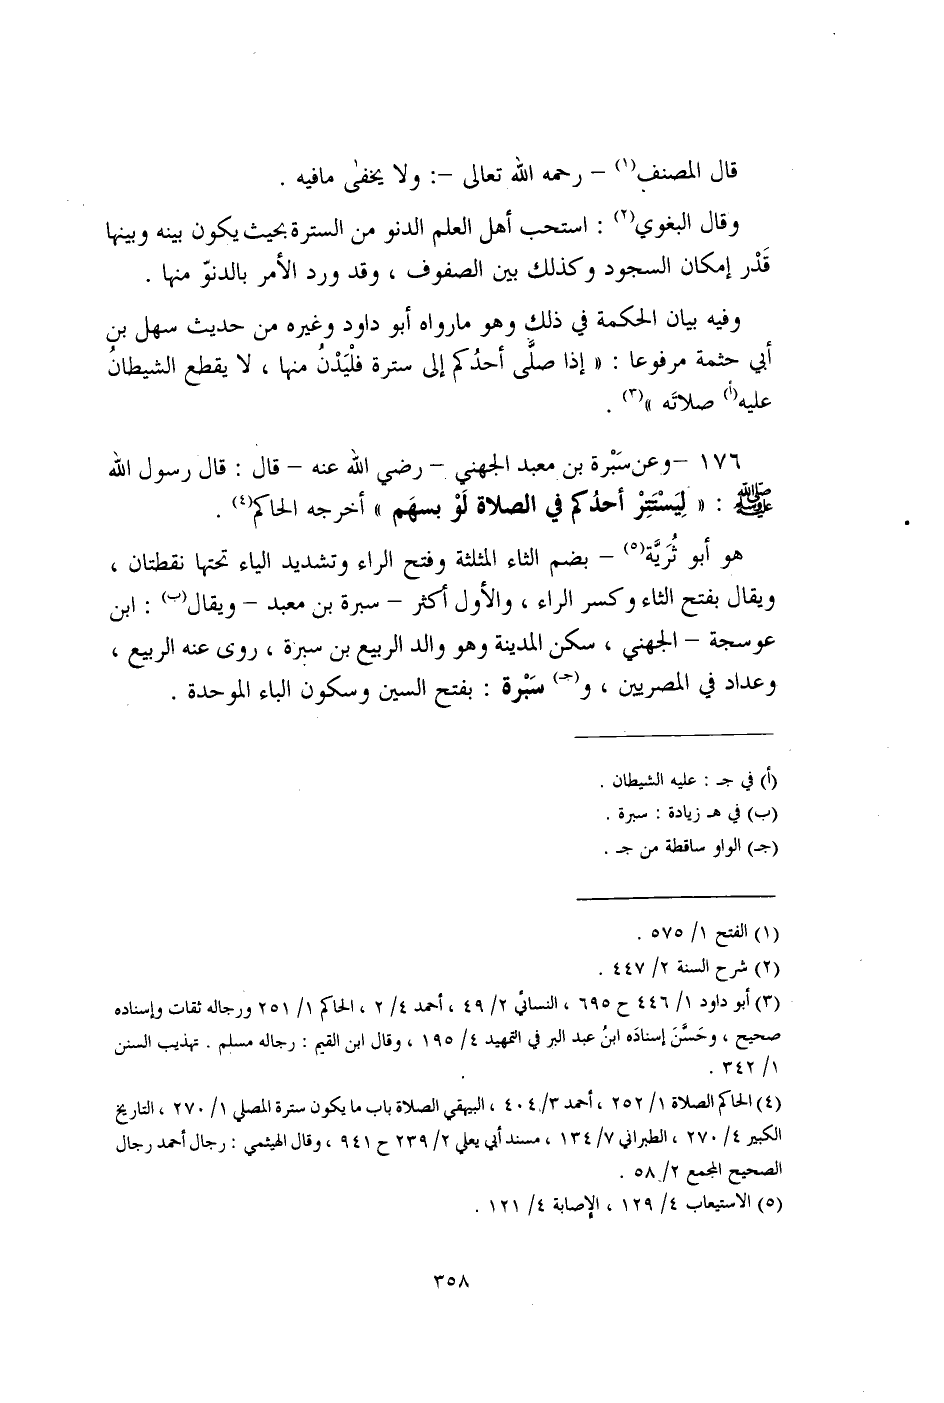 قال المصنف(١) – رحمه الله تعالى –: ولا يخفىٰ مافيه .
وقال البغوي(٢) : استحب أهل العلم الدنو من السترة بحيث يكون بينه وبينها
قَدْر إمكان السجود وكذلك بين الصفوف ، وقد ورد الأمر بالدنوّ منها .
وفيه بيان الحكمة في ذلك وهو مارواه أبو داود وغيره من حديث سهل بن
أبي حثمة مرفوعا : « إذا صلَّى أحدُكم إلى سترة فلْيَدْنُ منها ، لا يقطع الشيطانُ
عليه(أ) صلاتَه »(٣) .
١٧٦ –وعن سَبْرة بن معبد الجهني – رضي الله عنه – قال : قال رسول الله
ﷺ : « لِيَسْتَتِرْ أحدُكم في الصلاة لَوْ بسهَم » أخرجه الحاكم(٤) .
هو أبو ثُرَيَّة(٥) – بضم الثاء المثلثة وفتح الراء وتشديد الياء تحتها نقطتان ،
ويقال بفتح الثاء وكسر الراء ، والأول أكثر – سبرة بن معبد – ويقال(ب) : ابن
عوسجة – الجهني ، سكن المدينة وهو والد الربيع بن سبرة ، روى عنه الربيع ،
وعداد في المصريين ، و(جـ) سَبْرة : بفتح السين وسكون الباء الموحدة .
(أ) في جـ : عليه الشيطان .
(ب) في هـ زيادة : سبرة .
(جـ) الواو ساقطة من جـ .
(١) الفتح ١/ ٥٧٥ .
(٢) شرح السنة ٢/ ٤٤٧ .
(٣) أبو داود ١/ ٤٤٦ ح ٦٩٥ ، النسائي ٢/ ٤٩ ، أحمد ٤/ ٢ ، الحاكم ١/ ٢٥١ ورجاله ثقات وإسناده
صحيح ، وحَسَّنَ إسنادَه ابنُ عبد البر في التمهيد ٤/ ١٩٥ ، وقال ابن القيم : رجاله مسلم . تهذيب السنن
١/ ٣٤٢ .
(٤) الحاكم الصلاة ١/ ٢٥٢ ، أحمد ٣/ ٤٠٤ ، البيهقي الصلاة باب ما يكون سترة المصلي ١/ ٢٧٠ ، التاريخ
الكبير ٤/ ٢٧٠ ، الطبراني ٧/ ١٣٤ ، مسند أبي يعلى ٢/ ٢٣٩ ح ٩٤١ ، وقال الهيثمي : رجال أحمد رجال
الصحيح المجمع ٢/ ٥٨ .
(٥) الاستيعاب ٤/ ١٢٩ ، الإصابة ٤/ ١٢١ .
٣٥٨